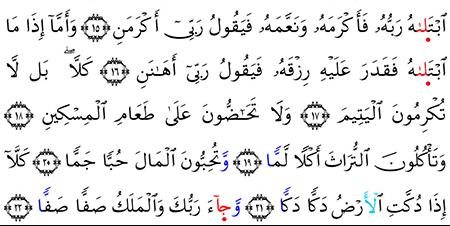 ٱبۡتَلَىٰهُ رَبُّهُۥ فَأَكۡرَمَهُۥ وَنَعَّمَهُۥ فَيَقُولُ رَبِّيٓ أَكۡرَمَنِ ١٥ وَأَمَّآ إِذَا مَا
ٱبۡتَلَىٰهُ فَقَدَرَ عَلَيۡهِ رِزۡقَهُۥ فَيَقُولُ رَبِّيٓ أَهَٰنَنِ ١٦ كَلَّاۖ بَل لَّا
تُكۡرِمُونَ ٱلۡيَتِيمَ ١٧ وَلَا تَحَٰٓضُّونَ عَلَىٰ طَعَامِ ٱلۡمِسۡكِينِ ١٨
وَتَأۡكُلُونَ ٱلتُّرَاثَ أَكۡلٗا لَّمّٗا ١٩ وَتُحِبُّونَ ٱلۡمَالَ حُبّٗا جَمّٗا ٢٠ كَلَّآ
إِذَا دُكَّتِ ٱلۡأَرۡضُ دَكّٗا دَكّٗا ٢١ وَجَآءَ رَبُّكَ وَٱلۡمَلَكُ صَفّٗا صَفّٗا ٢٢